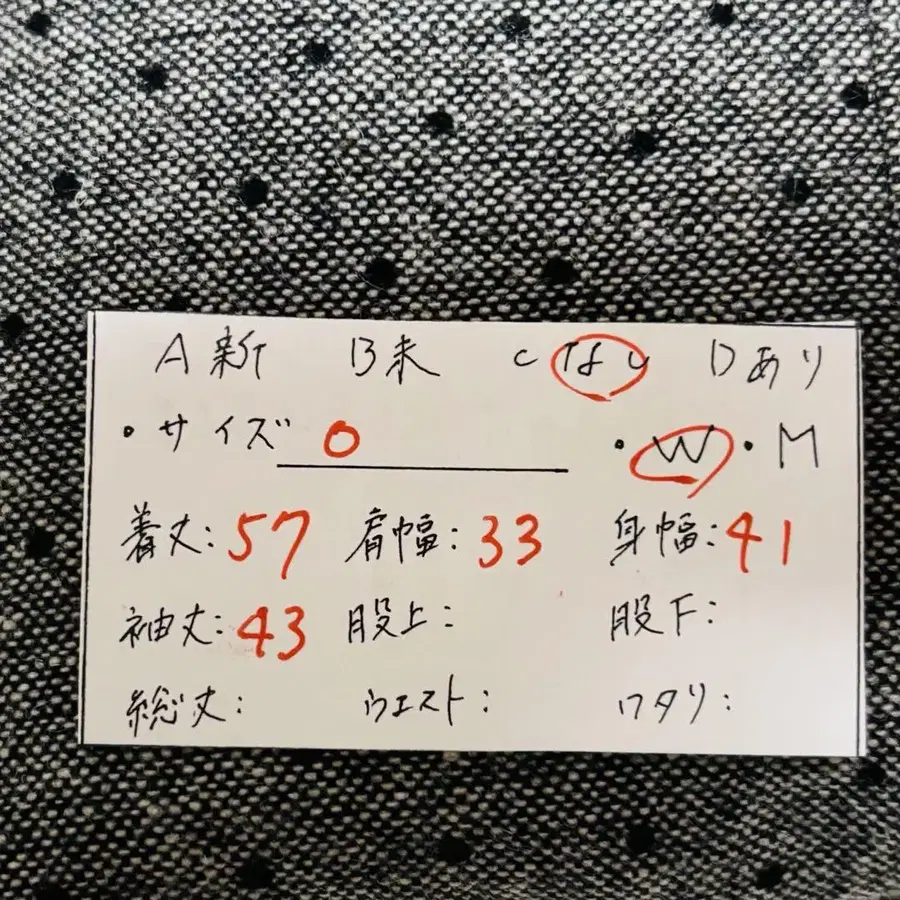 A新 B未 Cなし Dあり
・サイズ 0 ・W・M
着丈:57 肩幅:33 身幅:41
袖丈:43 股上: 股下:
総丈: ウエスト: ワタリ: